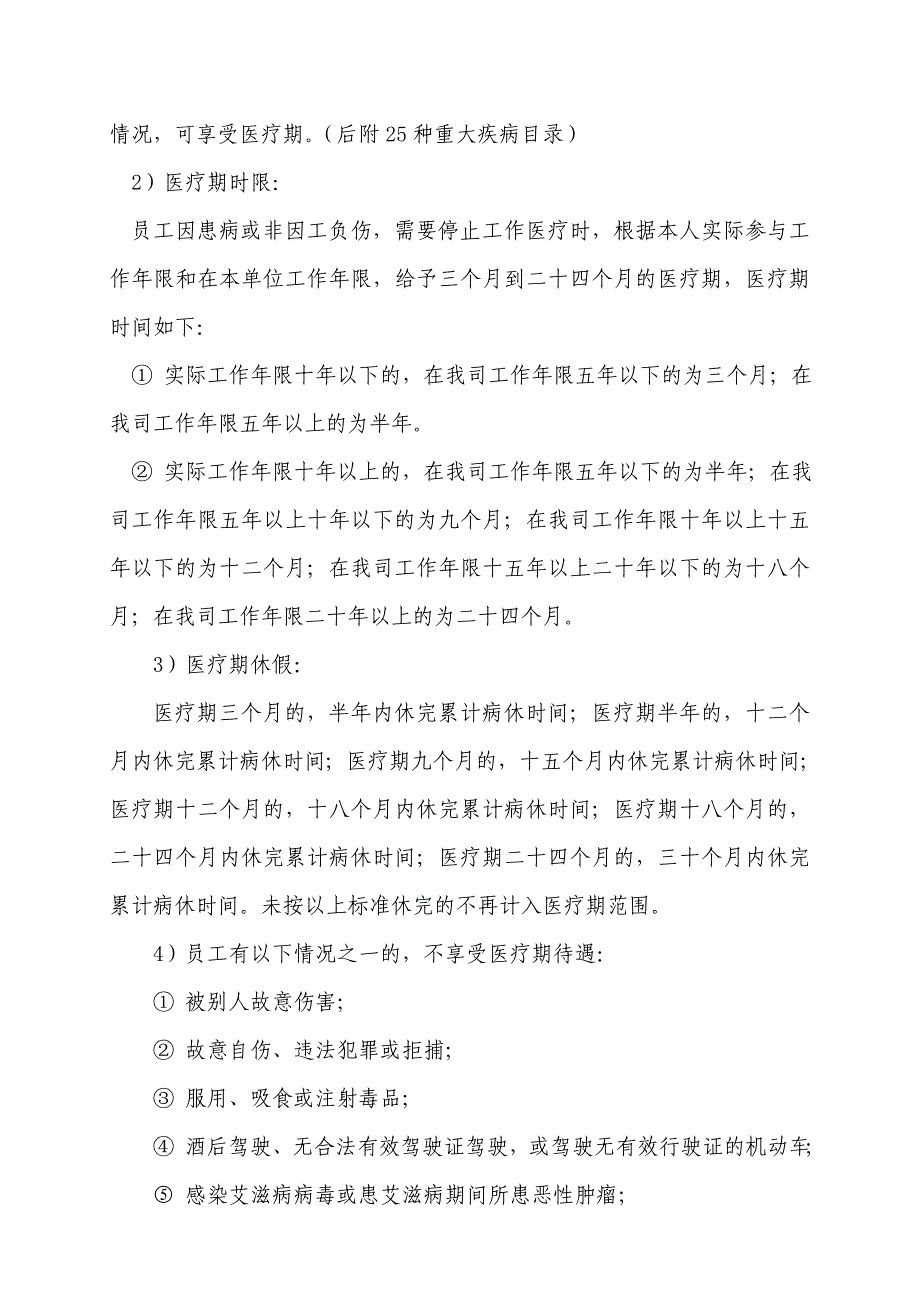 情况，可享受医疗期。（后附 25 种重大疾病目录）
2）医疗期时限：
员工因患病或非因工负伤，需要停止工作医疗时，根据本人实际参与工
作年限和在本单位工作年限，给予三个月到二十四个月的医疗期，医疗期
时间如下：
① 实际工作年限十年以下的，在我司工作年限五年以下的为三个月；在
我司工作年限五年以上的为半年。
② 实际工作年限十年以上的，在我司工作年限五年以下的为半年；在我
司工作年限五年以上十年以下的为九个月；在我司工作年限十年以上十五
年以下的为十二个月；在我司工作年限十五年以上二十年以下的为十八个
月；在我司工作年限二十年以上的为二十四个月。
3）医疗期休假：
医疗期三个月的，半年内休完累计病休时间；医疗期半年的，十二个
月内休完累计病休时间；医疗期九个月的，十五个月内休完累计病休时间；
医疗期十二个月的，十八个月内休完累计病休时间；医疗期十八个月的，
二十四个月内休完累计病休时间；医疗期二十四个月的，三十个月内休完
累计病休时间。未按以上标准休完的不再计入医疗期范围。
4）员工有以下情况之一的，不享受医疗期待遇：
① 被别人故意伤害；
② 故意自伤、违法犯罪或拒捕；
③ 服用、吸食或注射毒品；
④ 酒后驾驶、无合法有效驾驶证驾驶，或驾驶无有效行驶证的机动车；
⑤ 感染艾滋病病毒或患艾滋病期间所患恶性肿瘤；